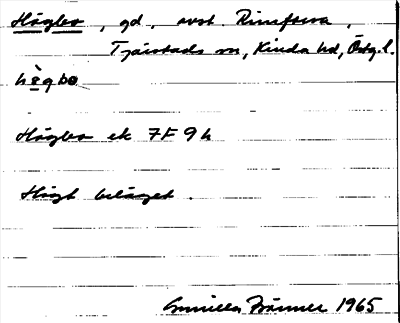 Högbo, gd, avst. Rimforsa,
Tjärstads sn, Kinda hd, Östg.l.
Högbo ek 7F 9h
Högt beläget.
Gunilla Brånner 1965